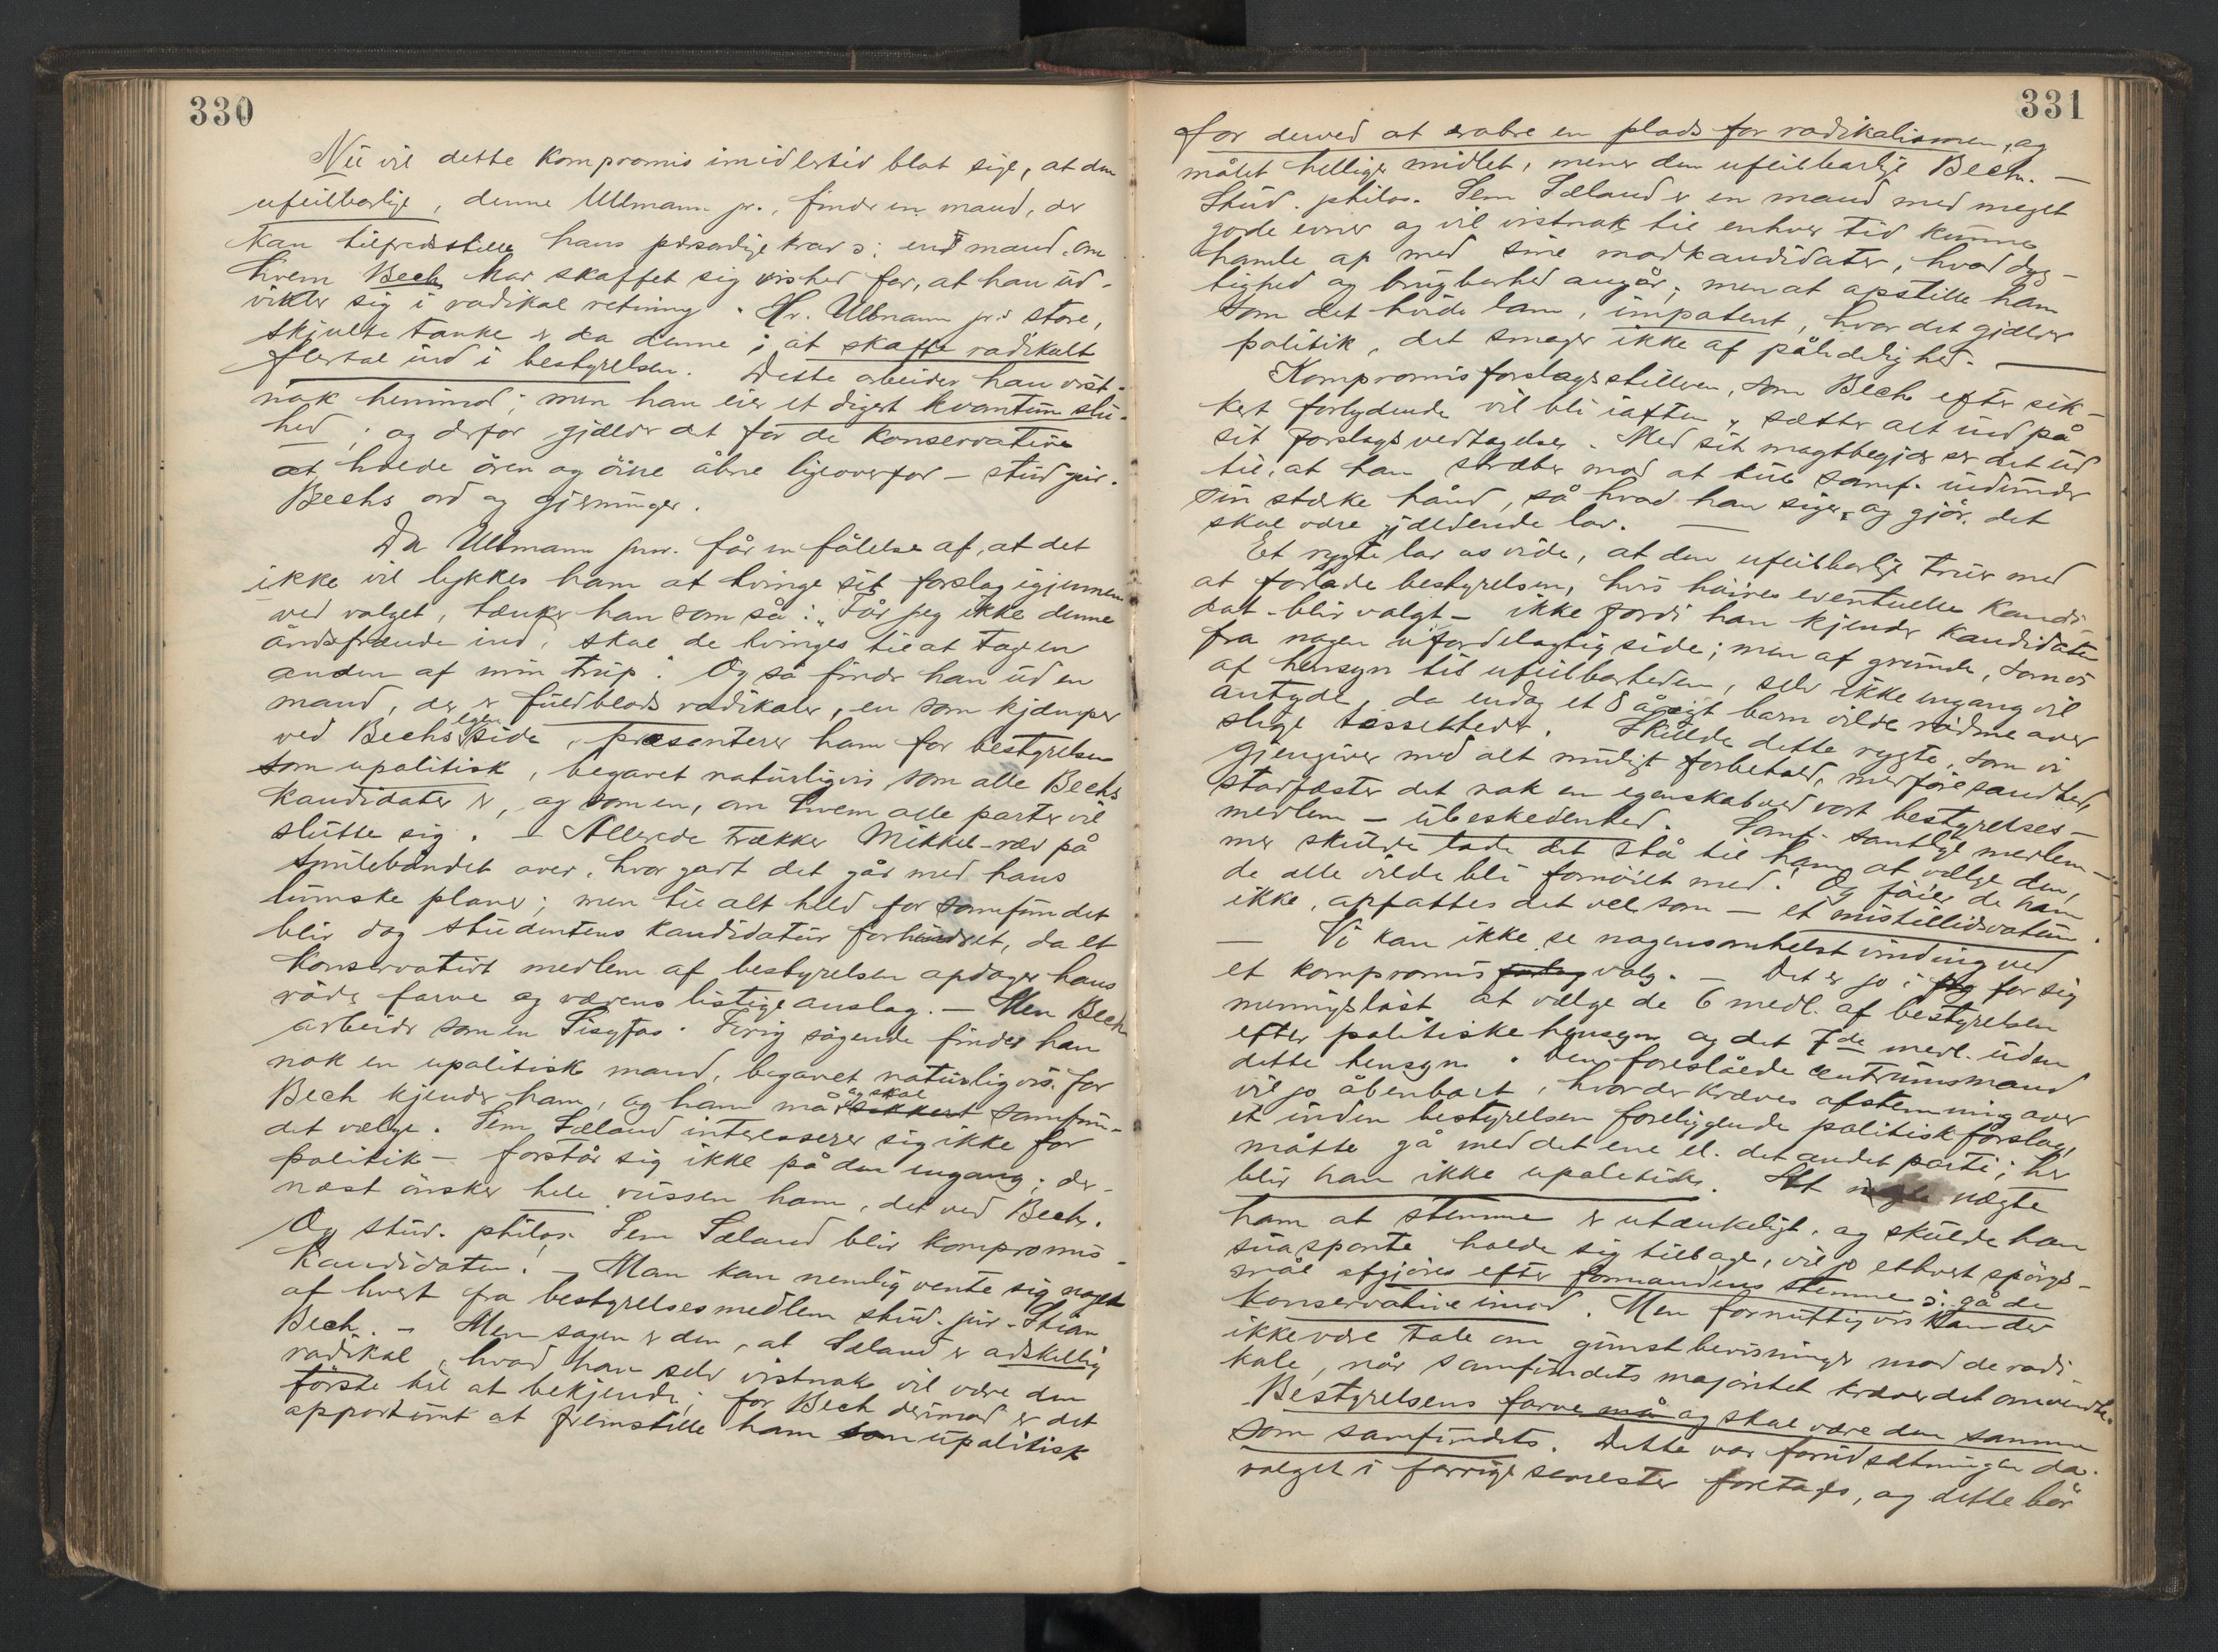 330
Nu vil dette kompromis imidlertid blot sige, at den
ufeilbarlige, denne Ullmann jr., finder en mand, der
kan tilfredsstille hans personlige krav ɔ: en mand, om
hvem Bech har skaffet sig vished for, at han ud-
vikler sig i radikal retning. Hr. Ullmann jr.s store,
skjulte tanke er da denne: at skaffe radikalt
flertal ind i bestyrelsen. Dette arbeider han vist-
nok henimod; men han eier et digert kvantum slu-
hed; og derfor gjælder det for de konservative
at holde ören og öine åbne ligeoverfor – stud. jur.
Bechs ord og gjerninger.
Da Ullmann junr. får en fölelse af, at det
ikke vil lykkes ham at tvinge sit forslag igjennem
ved valget, tænker han som så: „Får jeg ikke denne
åndsfrænde ind, skal de tvinges til at tage en
anden af min trup“. Og så finder han ud en
mand, der er fuldblods radikaler, en som kjæmper
ved Bechs egen side, præsenterer ham for bestyrelsen
som upolitisk, begavet naturligvis som alle Bechs
kandidater er, og som en, om hvem alle parter vil
slutte sig. – Allerede trækker Mikkel-ræv på
smilebåndet over, hvor godt det går med hans
lumske planer; men til alt held for samfundet
blir dog studentens kandidatur forhindret, da et
konservativt medlem af bestyrelsen opdager hans
röde farve og rævens listige anslag. – Men Bech
arbeider som en Sisyfos. Ivrig sögende finder han
nok en upolitisk mand, begavet naturligvis. for
Bech kjender ham, og ham må og skal sikkert samfun-
det vælge. Sem Sæland interesserer sig ikke for
politik – forstår sig ikke på den engang; der-
næst önsker hele russen ham, det ved Bech.
Og stud. philos. Sem Sæland blir kompromis-
kandidaten! – Man kan nemlig vente sig noget
af hvert fra bestyrelsesmedlem stud. jur. Stian
Bech. – Men sagen er den, at Sæland er adskellig
radikal, hvad han selv vistnok vil være den
förste til at bekjende; for Bech derimod er det
opportunt at fremstille ham som upolitisk
331
for derved at erobre en plads for radikalismen, og
målet helliger midlet, mener den ufeilbarlige Bech. –
Stud. philos. Sem Sæland er en mand med meget
gode evner og vil vistnok til enhver tid kunne
hamle op med sine modkandidater, hvad dyg-
tighed og brugbarhed angår; men at opstille ham
som det hvide lam, impotent, hvor det gjælder
politik, det smager ikke af pålidelighed. –
Kompromisforslagsstilleren, som Bech efter sik-
kert forlydende vil bli iaften, sætter alt ind på
sit forslags vedtagelse. Med sit magtbegjær ser det ud
til, at han stræber mod at tule samf. ind under
sin stærke hånd, så hvad han siger og gjör, det
skal være gjældende lov. –
Et rygte lar os vide, at den ufeilbarlige truer med
at forlade bestyrelsen, hvis höires eventuelle kandi-
dat blir valgt – ikke fordi han kjender kandidaten
fra nogen ufordelagtig side; men af grunde, som vi
af hensyn til ufeilbarheden, selv ikke engang vil
antyde, da endog et 8 årigt barn vilde rödme over
slige tåssetheder. Skulde dette rygte, som vi
gjengiver med alt muligt forbehold, medföre sandhed,
stadfæster det nok en egenskab ved vort bestyrelses-
medlem – ubeskedenhed. Samf. samtlige medlem-
mer skulde lade det stå til ham at vælge den,
de alle vilde bli fornöiet med. Og föier de ham
ikke, opfattes det vel som – et mistillidsvotum.
– Vi kan ikke se nogensomhelst vinding ved
et kompromis forslag valg. – Det er jo i sig for sig
meningslöst at vælge de 6 medl. af bestyrelsen
efter politiske hensyn og det 7de medl. uden
dette hensyn. Den foreslåede centrumsmand
vil jo åbenbart, hvor der kræves afstemning over
et inden bestyrelsen foreliggende politisk forslag,
måtte gå med det ene el. det andet parti; her
blir han ikke upolitisk. At nægte
ham at stemme er utænkeligt. og skulde han
sua sponte holde sig tilbage, vil jo ethvert spörgs-
mål afgjöres efter formandens stemme ɔ: gå de
konservative imod. Men fornuftigvis kan der
ikke være tale om gunstbevisninger mod de radi-
kale, når samfundets majoritet kræver det omvendte.
Bestyrelsens farve må og skal være den samme
som samfundets. Dette var forudsætningen da
valget i forrige semester foretoges, og dette bör